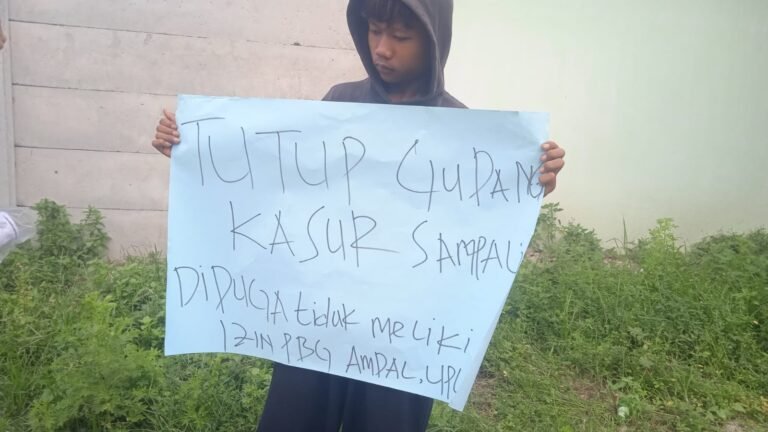 TUTUP GUDANG
KASUR SAMPALI
DiDUGA tiduk meLiki
IZIN PBG AMDAL, UPL